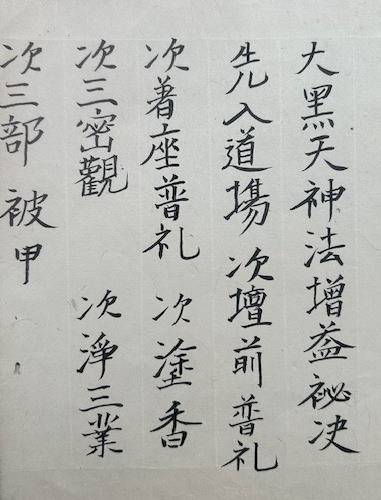 大黑天神法增益祕决
先入道場 次壇前普礼
次著座普礼 次塗香
次三密觀 次淨三業
次三部 被甲